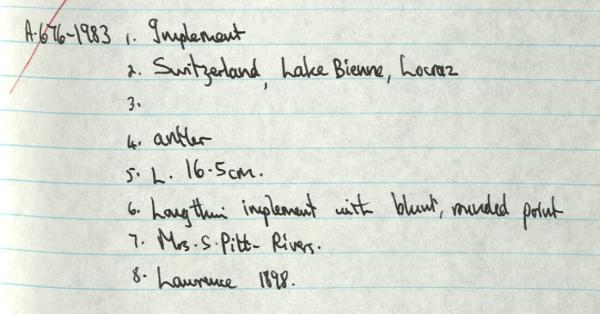 A.676-1983 1. Implement
2. Switzerland, Lake Bienne, Locraz
3.
4. antler
5. L. 16.5cm.
6. Long thin implement with blunt, rounded point
7. Mrs. S. Pitt-Rivers.
8. Lawrence 1898.